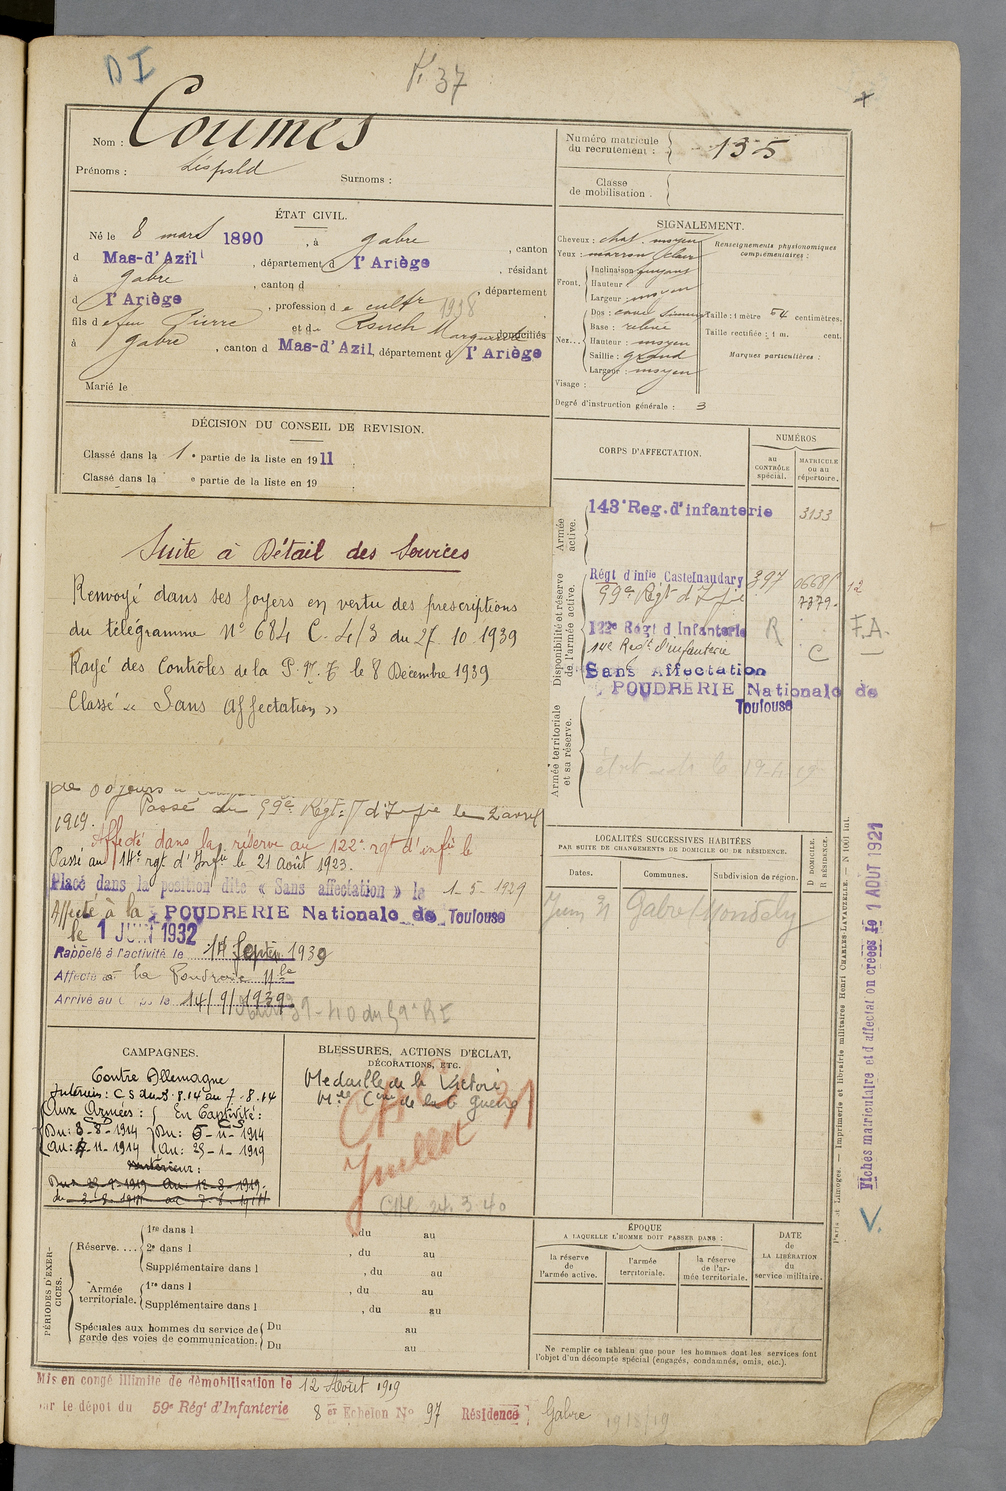 D I
37
Nom : Coumes
Prénoms : Léopold Surnoms :
Numéro matricule du recrutement : 135
Classe de mobilisation :
ÉTAT CIVIL.
Né le 8 mars 1890, à Gabre, canton
d Mas-d'Azil, département d l'Ariège, résidant
à Gabre, canton d , département
d l'Ariège, profession de cultr 1938
fils de feu Pierre et de Rouch Marguerite domiciliés
à Gabre, canton d Mas-d'Azil, département d l'Ariège
Marié le
SIGNALEMENT.
Cheveux : chat. moyen
Yeux : marron clair
Front. Inclinaison fuyant
Hauteur :
Largeur : moyen
Nez... Dos : cavé sinueux
Base : relevé
Hauteur : moyen
Saillie : grand
Largeur : moyen
Visage :
Renseignements physionomiques complémentaires :
Taille : 1 mètre 64 centimètres.
Taille rectifiée : 1 m. cent.
Marques particulières :
Degré d'instruction générale : 3
DÉCISION DU CONSEIL DE REVISION.
Classé dans la 1e partie de la liste en 1911
Classé dans la e partie de la liste en 19
CORPS D'AFFECTATION.
NUMÉROS
au CONTRÔLE spécial.
MATRICULE ou au répertoire.
Armée active.
143e Reg. d'infanterie 3133
Disponibilité et réserve de l'armée active.
Régt d'infie Castelnaudary 397
59e Régt d'Infie 7379
122e Régt d'Infanterie R
14e Régt d'infanterie C
F.A.
Sans Affectation
POUDRERIE Nationale de
Toulouse
Armée territoriale et sa réserve.
Suite à Détail des Services
Renvoyé dans ses foyers en vertu des prescriptions
du télégramme No 684 C. 4/3 du 27.10.1939
Rayé des Contrôles de la P.N.T le 8 Décembre 1939
Classé « Sans affectation »
Passé au 59e Régt d'Infie le 2 avril
1919.
Affecté dans la réserve au 122e rgt d'infie le
Passé au 14e rgt d'Infie le 21 août 1923.
Placé dans la position dite « Sans affectation » le 1-5-1929
Affecté à la POUDRERIE Nationale de Toulouse
le 1 JUIN 1932
Rappelé à l'activité le 14 Septem 1939
Affecté à la Poudrerie Nle
Arrivé au le 14/9/1939
LOCALITÉS SUCCESSIVES HABITÉES
PAR SUITE DE CHANGEMENTS DE DOMICILE OU DE RÉSIDENCE.
Dates. Communes. Subdivision de région. D DOMICILE. R RÉSIDENCE.
Gabre
CAMPAGNES.
Contre Allemagne
Intérieur : CS du 3.8.14 au 7.8.14
Aux Armées : En Captivité :
Du : 8-8-1914 Du : 5-11-1914
Au : 4-11-1914 Au : 25-1-1919
Intérieur :
BLESSURES, ACTIONS D'ÉCLAT,
DÉCORATIONS, ETC.
Médaille de la Victoire
Mlle Com de la G Guerre
Juillet 31
24-3-40
PÉRIODES D'EXERCICES.
Réserve.... 1re dans l , du au
2e dans l , du au
Supplémentaire dans l , du au
Armée territoriale. 1re dans l , du au
Supplémentaire dans l , du au
Spéciales aux hommes du service de garde des voies de communication. Du au
Du au
ÉPOQUE
A LAQUELLE L'HOMME DOIT PASSER DANS :
la réserve de l'armée active.
l'armée territoriale.
la réserve de l'armée territoriale.
DATE de LA LIBÉRATION du service militaire.
Ne remplir ce tableau que pour les hommes dont les services font
l'objet d'un décompte spécial (engagés, condamnés, omis, etc.).
Paris et Limoges. — Imprimerie et librairie militaires Henri CHARLES-LAVAUZELLE. — N 1001 int.
Fiches matriculaire et d'affectation créées le 1 AOUT 1921
V.
Mis en congé illimité de démobilisation le 12 Août 1919
par le dépot du 59e Régt d'Infanterie 8 er Echelon No 97 Résidence Gabre